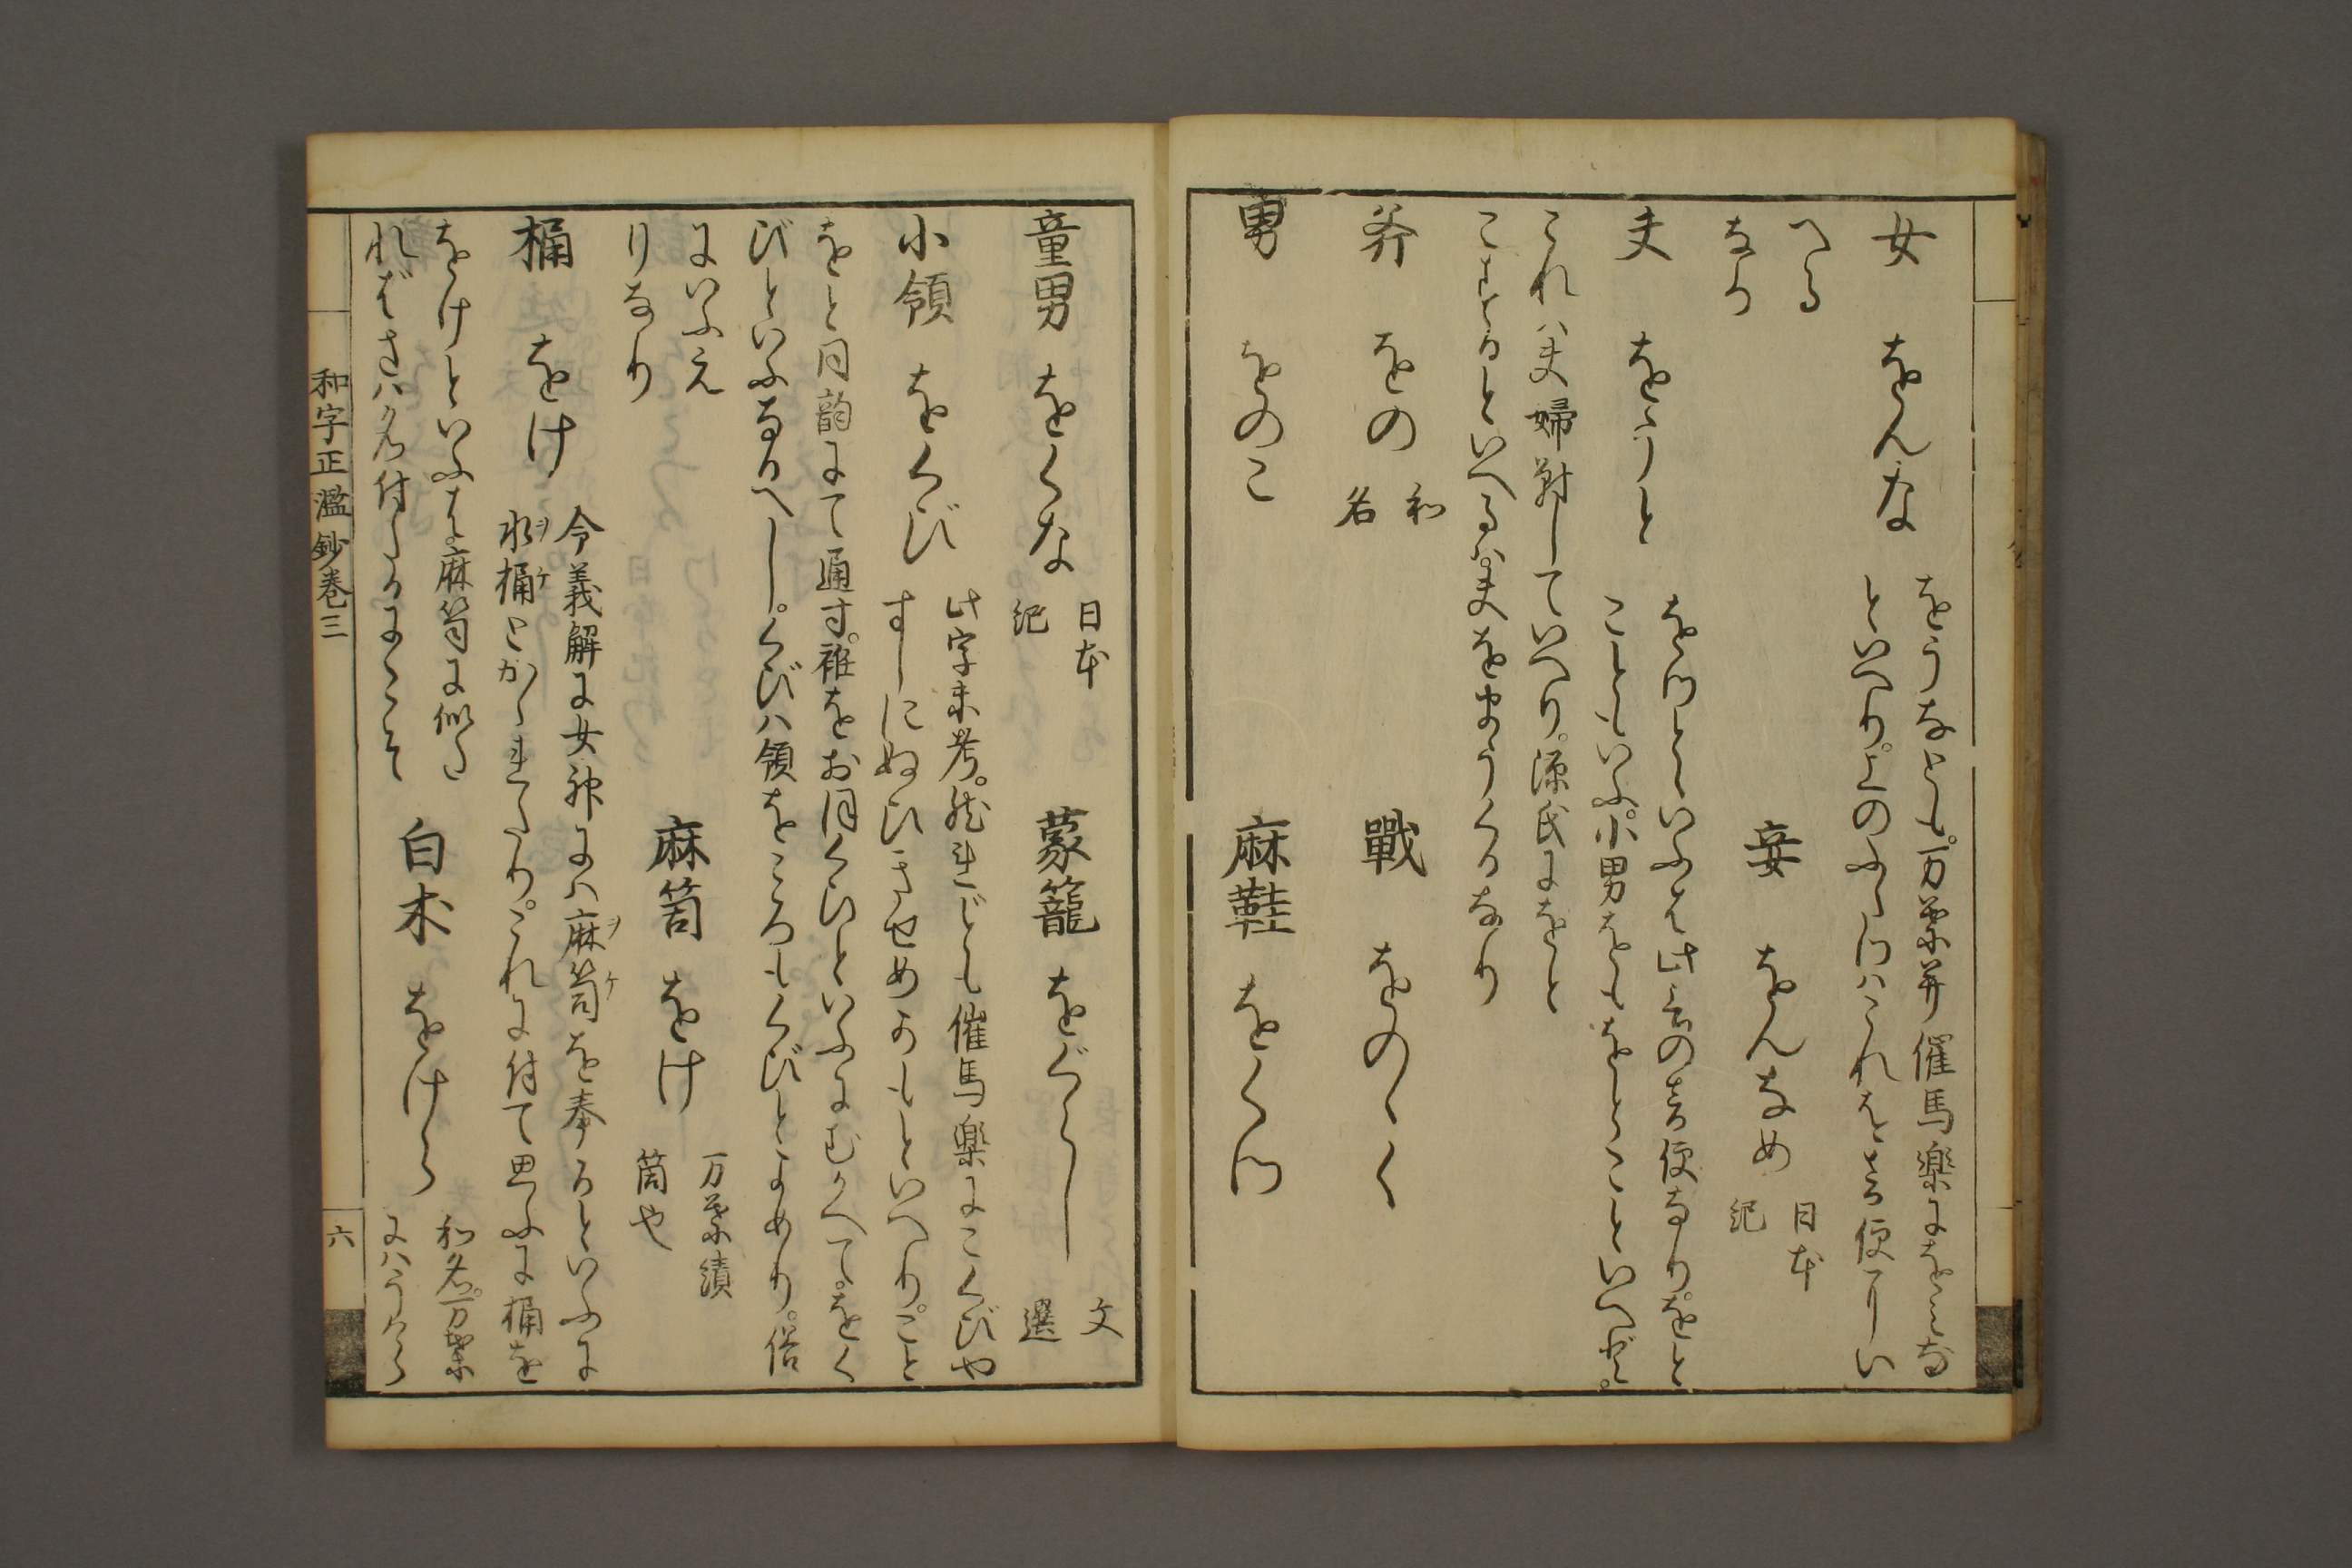 女 をんな
をうなとも。万葉并催馬楽にをみな
といへり。上のふたつはこれを音便にい
へる
なり
妾 をんなめ 日本紀
夫 をうと
をつとゝいふは此音の音便なりをと
ことも いふ。小男をもをとこといへど。
これハ夫婦対していへり。源氏にをと
こするといへるハ夫をまうくるなり
斧 をの 和名
戰 をのゝく
男 をのこ
麻鞋 をくつ
童男 をくな 日本紀
蒙籠 をぐらし 文選
小領 をくび
此字未考。然れども催馬楽にこくびや
すしにぬひきせめかもといへり。こと
をと同韵にて通す。袵をおほくびといふにむかへて。をく
びといふなるへし。くびハ領をころもくびとよめり。俗
にいふえ
りなり
麻笥 をけ 万葉績筒也
桶 をけ
令義解に女神にハ麻笥を奉るといふに
水桶とかゝれたり。これに付て思ふに桶を
をけといふは麻笥に似た
ればさハ名付たるにこそ
白朮 をけら
和名。万葉
にハうけら
和字正濫鈔巻三
六